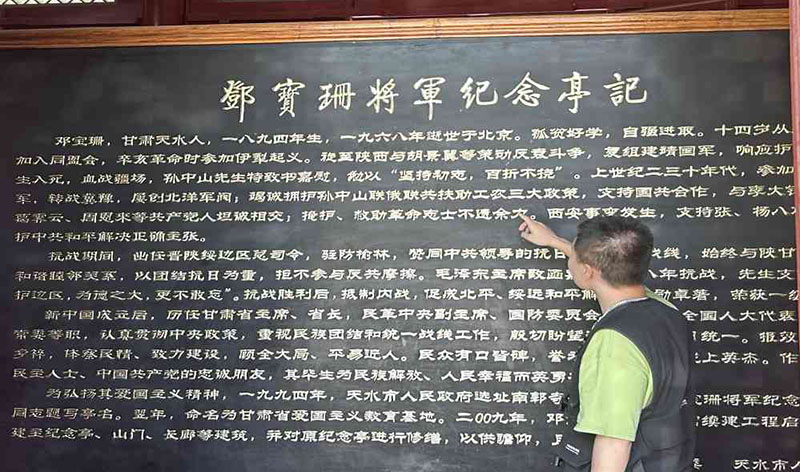 鄧寶珊將軍纪念亭記
邓宝珊，甘肃天水人，一八九四年生，一九六八年逝世于北京。孤贫好学，自强进取。十四岁从
加入同盟会，辛亥革命时参加伊犁起义。旋至陕西与胡景翼等策动反袁斗争，复组建靖国军，响应护
生入死，血战疆场，孙中山先生特致书嘉慰，勉以“坚持初志，百折不挠”。上世纪二三十年代，参加
军，转战冀豫，屡创北洋军阀；竭诚拥护孙中山联俄联共扶助工农三大政策，支持国共合作，与李大
葛霁云、周恩来等共产党人坦诚相交；掩护、救助革命志士不遗余力。西安事变发生，支持张、杨八
护中共和平解决正确主张。
抗战期间，出任晋陕绥边区总司令，驻防榆林，赞同中共领导的抗日 战线，始终与陕甘
和谐睦邻关系，以团结抗日为重，拒不参与反共摩擦。毛泽东主席致函 八年抗战，先生支
护边区，为德之大，更不敢忘”。抗战胜利后，抵制内战，促成北平、绥远和平解 勋卓著，荣获一级
新中国成立后，历任甘肃省主席、省长，民革中央副主席、国防委员会 全國人大代表
常委等职，认真贯彻中央政策，重视民族团结和统一战线工作，殷切盼望 统一。
瘁，体察民情，致力建设，顾全大局，平易近人。民众有口皆碑，誉 上英杰。作
民主人士、中国共产党的忠诚朋友，其毕生为民族解放、人民幸福而英勇
为弘扬其爱国主义精神，一九九四年，天水市人民政府选址南郭寺 宝珊将军纪念
同志题写亭名。翌年，命名为甘肃省爱国主义教育基地。二00九年，邓 续建工程启
建主纪念亭、山门、长廊等建筑，并对原纪念亭进行修缮，以供瞻仰，
天水市人